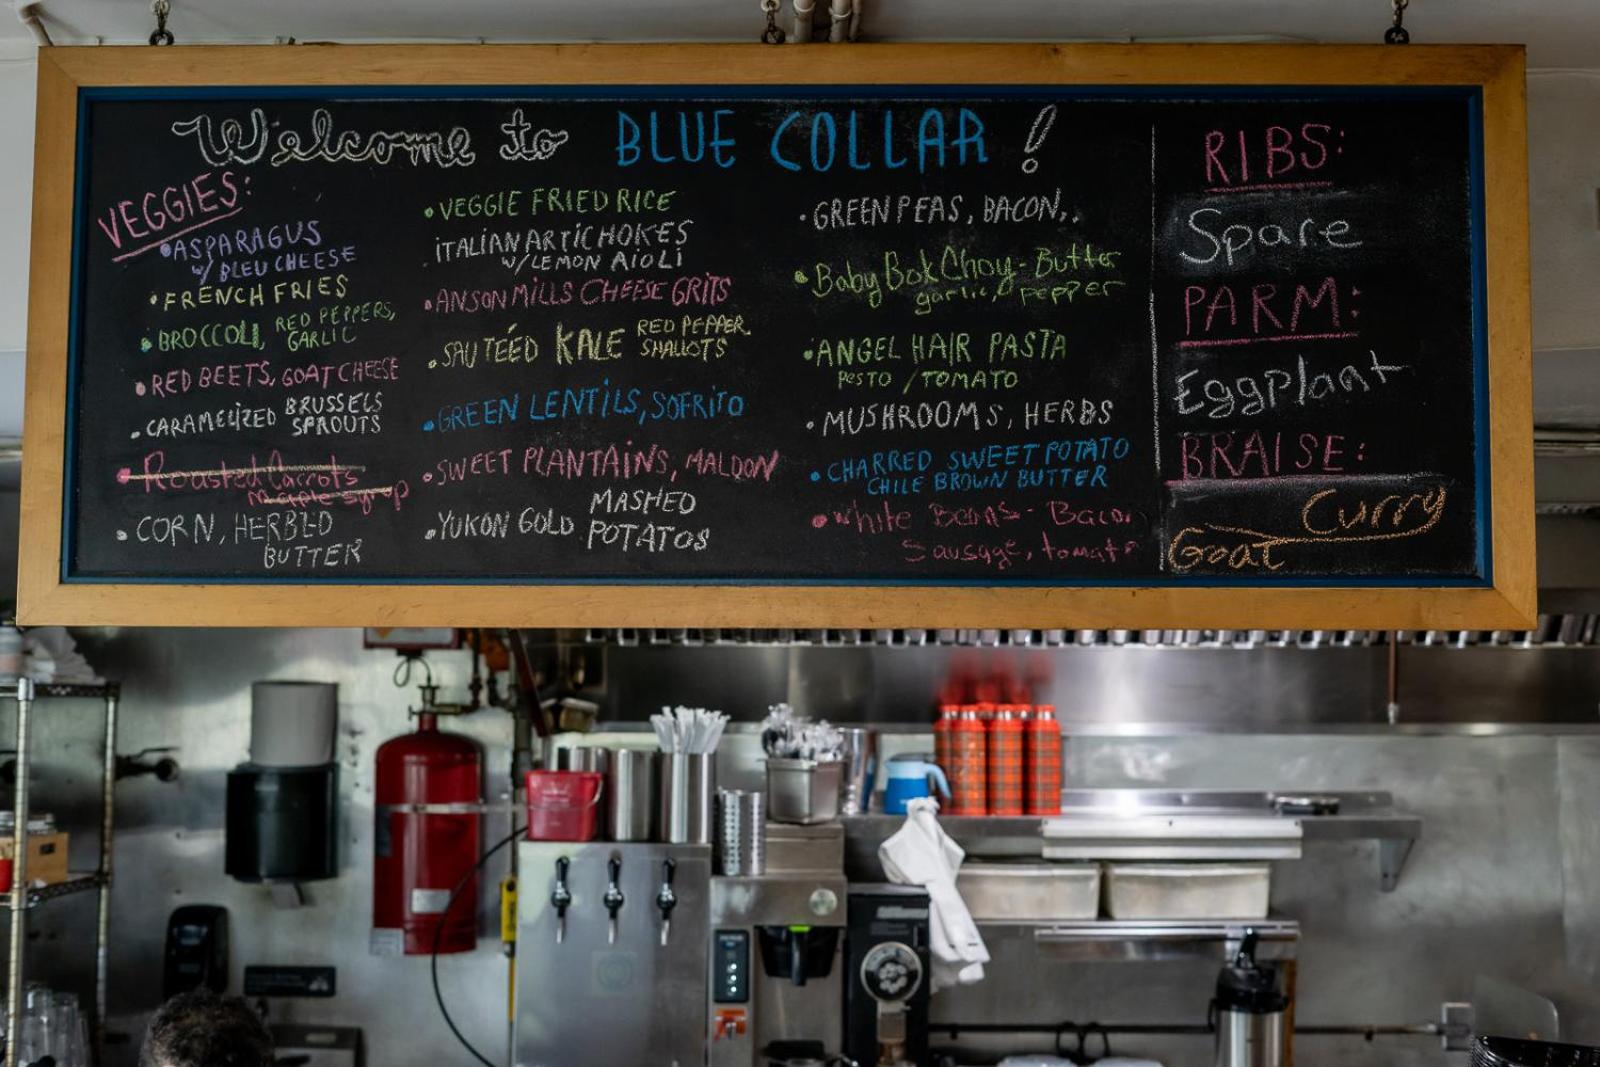 Welcome to BLUE COLLAR!
VEGGIES:
• ASPARAGUS
w/ BLEU CHEESE
• FRENCH FRIES
• BROCCOLI, RED PEPPERS,
GARLIC
• RED BEETS, GOAT CHEESE
• CARAMELIZED BRUSSELS
SPROUTS
• Roasted Carrots
maple syrup
• CORN, HERBED
BUTTER
• VEGGIE FRIED RICE
• ITALIAN ARTICHOKES
w/ LEMON AIOLI
• ANSON MILLS CHEESE GRITS
• SAUTÉED KALE RED PEPPER,
SHALLOTS
• GREEN LENTILS, SOFRITO
• SWEET PLANTAINS, MALDON
• YUKON GOLD MASHED
POTATOS
• GREEN PEAS, BACON,.
• Baby Bok Choy - Butter
garlic, pepper
• ANGEL HAIR PASTA
PESTO / TOMATO
• MUSHROOMS, HERBS
• CHARRED SWEET POTATO
CHILE BROWN BUTTER
• White Beans - Bacon
Sausage, tomato
RIBS:
Spare
PARM:
Eggplant
BRAISE:
Curry
Goat